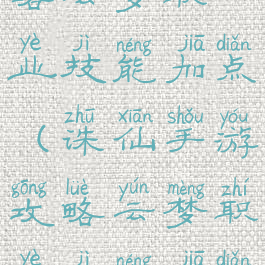 yè jì néng jiā diǎn
业技能加点
zhū xiān shǒu yóu
（诛仙手游
gōng lüè yún mèng zhí
攻略云梦职
yè jì néng jiā diǎn